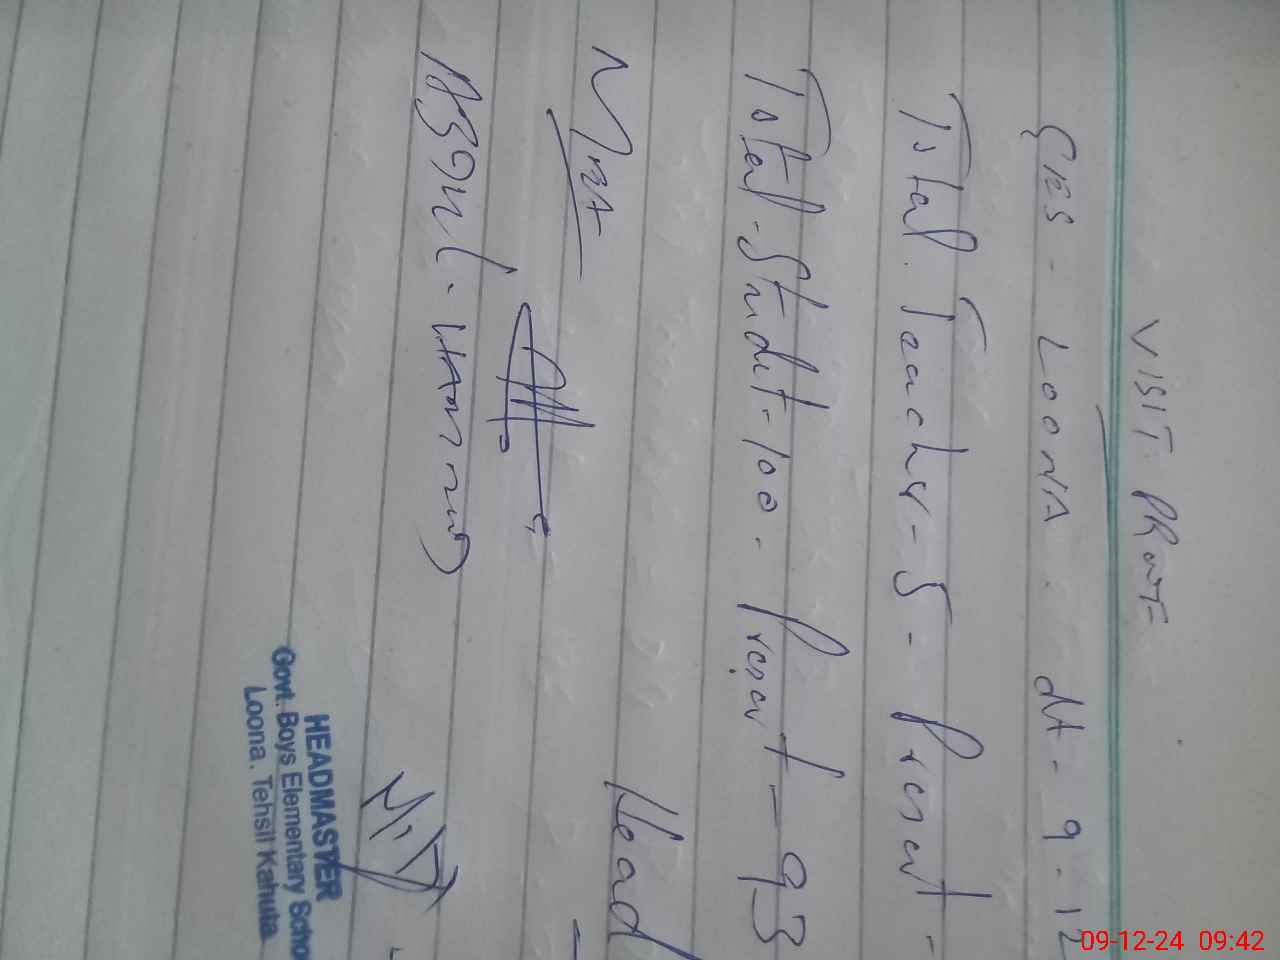 VISIT PROOF
GES - LOONA. dt - 9-12
Total. Teacher - 5 - Present -
Total - Student - 100 - Present - 93
Head
HEADMASTER
Govt. Boys Elementary Scho
Loona. Tehsil Kahuta
09-12-24 09:42